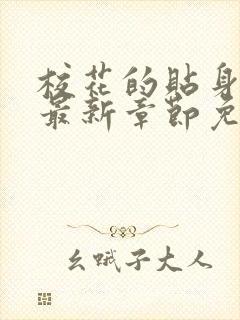 校花的贴身
最新章节免
幺哦子大人